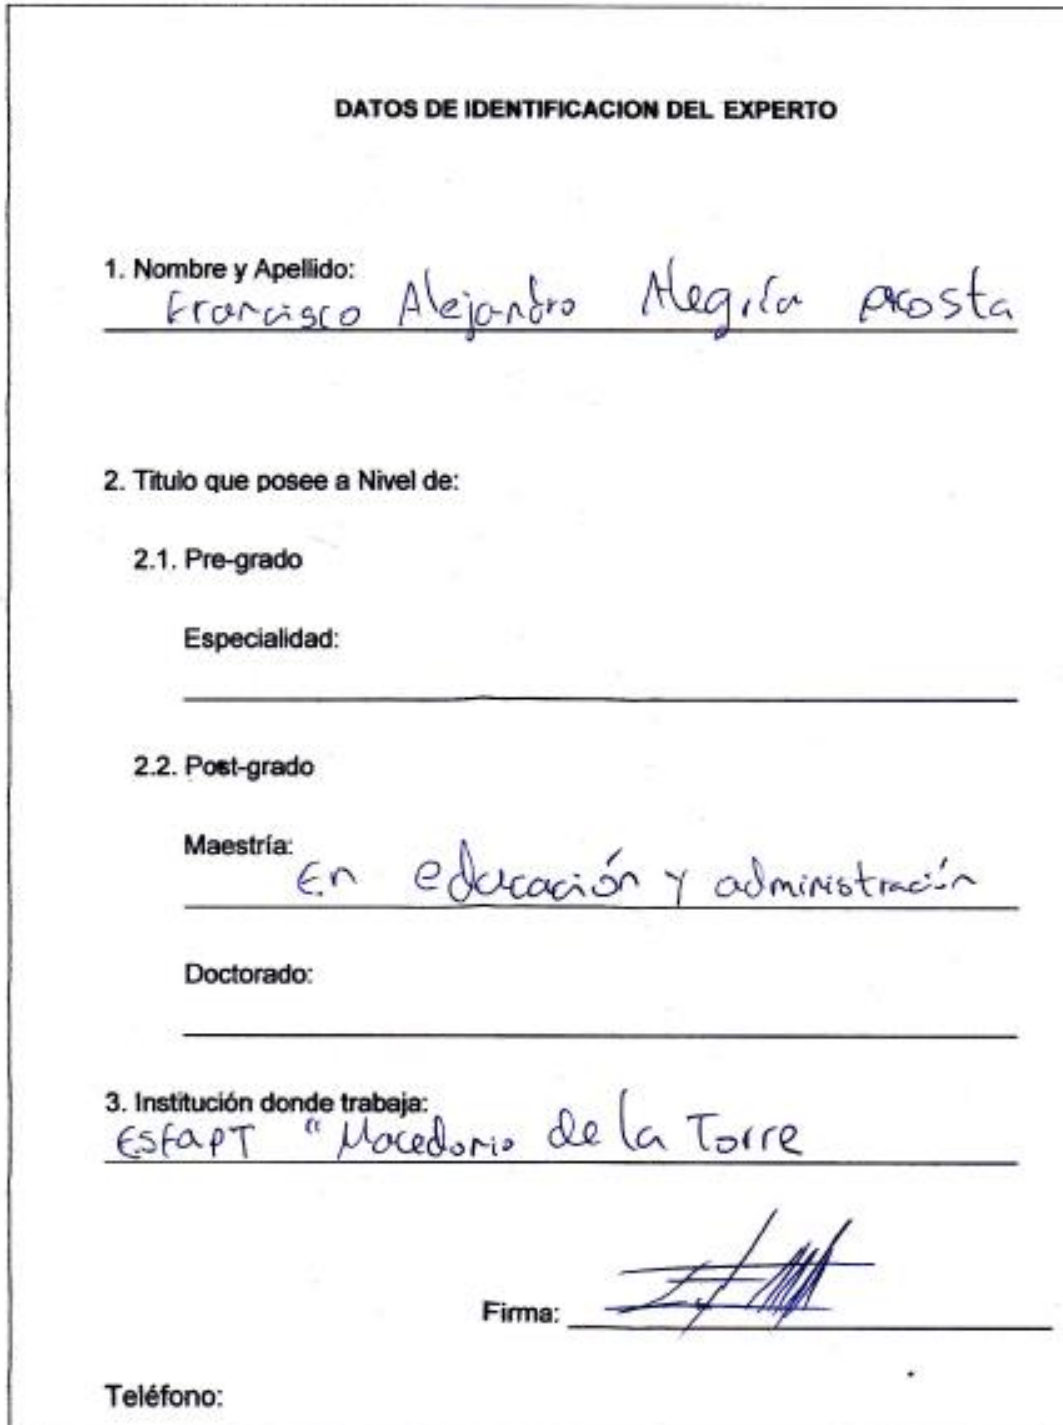 DATOS DE IDENTIFICACION DEL EXPERTO
1. Nombre y Apellido:
Francisco Alejandro Alegría Acosta
2. Titulo que posee a Nivel de:
2.1. Pre-grado
Especialidad:
2.2. Post-grado
Maestría:
En educación y administración
Doctorado:
3. Institución donde trabaja:
ESFAPT "Macedonio de la Torre
Firma:
Teléfono: